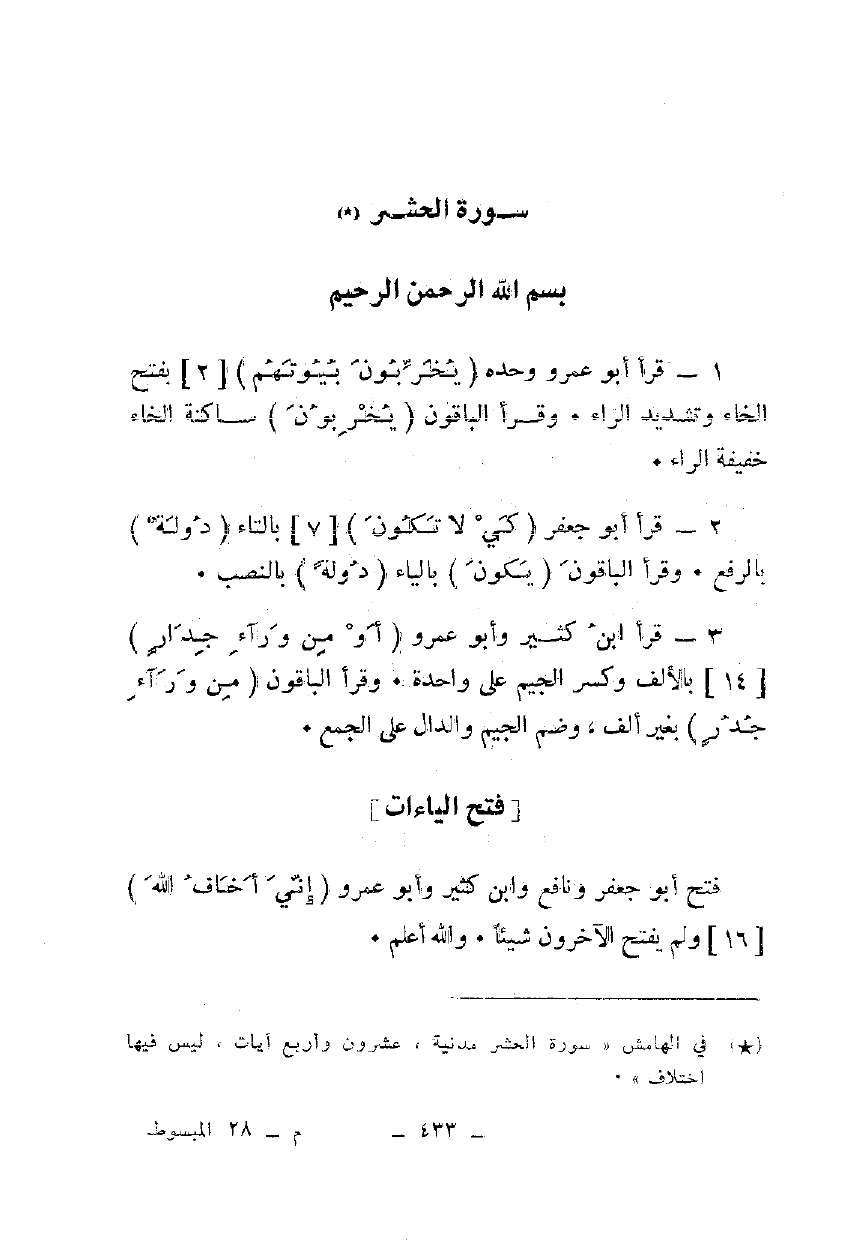 سورة الحشر (★)
بسم الله الرحمن الرحيم
١ ــ قرأ أبو عمرو وحده ( يُخَرِّبُونَ بُيُوتَهُم ) [ ٢ ] بفتح
الخاء وتشديد الراء • وقرأ الباقون ( يُخْرِبونَ ) ساكنة الخاء
خفيفة الراء •
٢ ــ قرأ أبو جعفر ( كَيْ لا تَكُونَ ) [ ٧ ] بالتاء ( دُولَةٌ )
بالرفع • وقرأ الباقونَ ( يَكونَ ) بالياء ( دُولةً ) بالنصب •
٣ ــ قرأ ابنُ كثير وأبو عمرو ( أَوْ مِن وَرَآءِ جِدَارٍ )
[ ١٤ ] بالألف وكسر الجيم على واحدة • وقرأ الباقون ( مِن وَرَآءِ
جُدُرٍ ) بغير ألف ، وضم الجيم والدال على الجمع •
[ فتح الياءات ]
فتح أبو جعفر ونافع وابن كثير وأبو عمرو ( إِنِّيَ أَخَافُ اللهَ )
[ ١٦ ] ولم يفتح الآخرون شيئاً • والله أعلم •
(★) في الهامش « سورة الحشر مدنية ، عشرون وأربع آيات ، ليس فيها
اختلاف » •
ــ ٤٣٣ ــ م ــ ٢٨ المبسوط